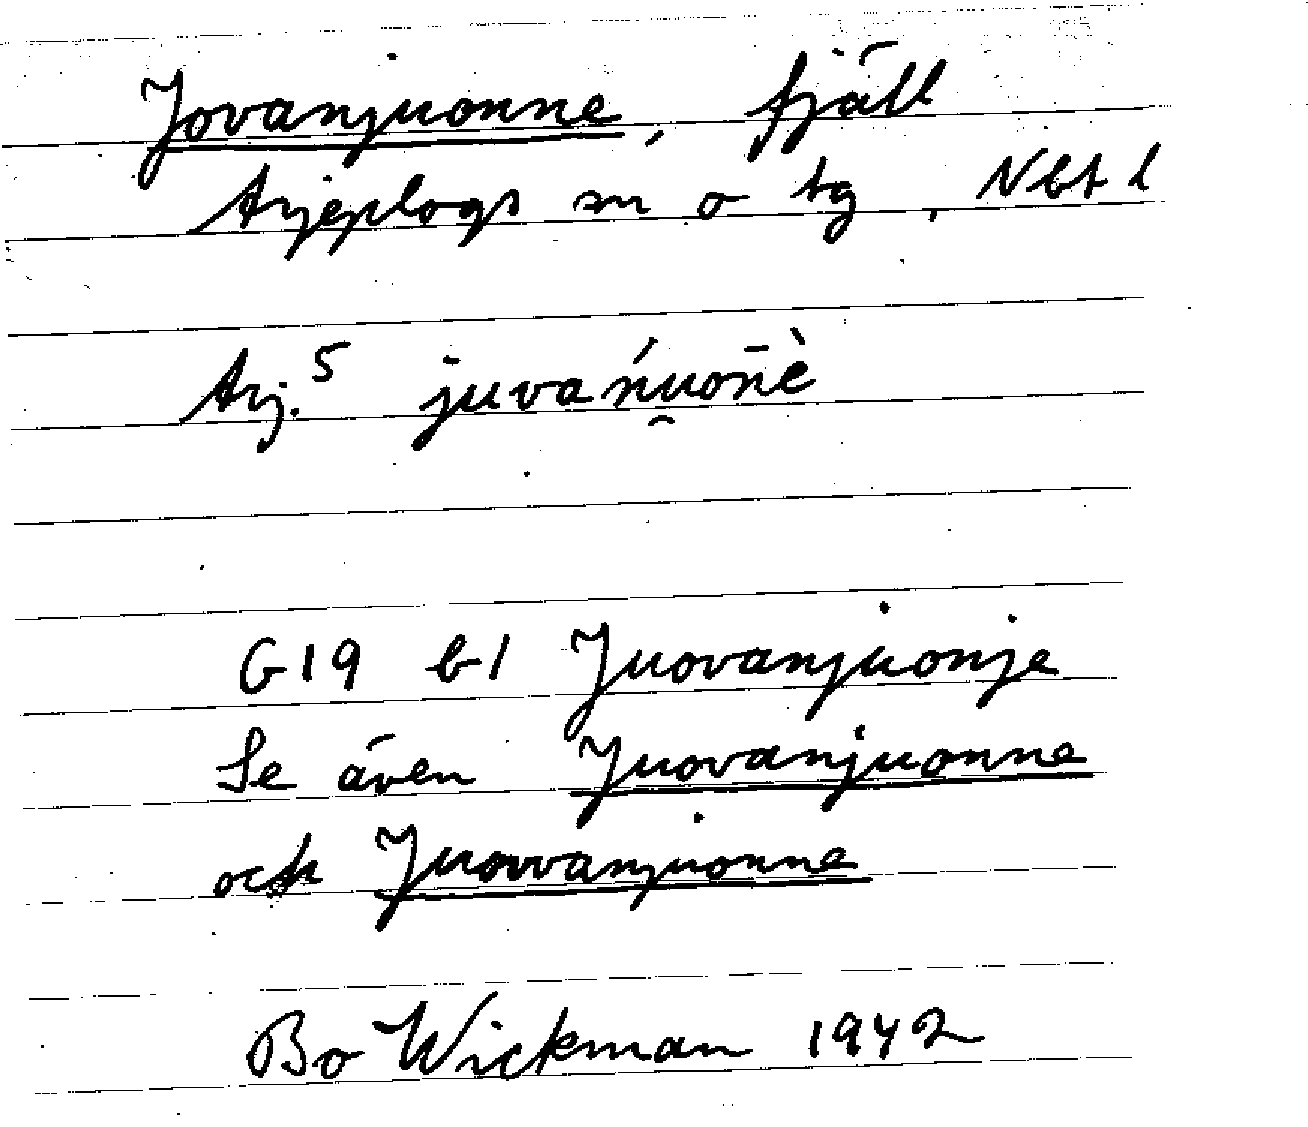 Jovanjuonne, fjäll
Arjeplogs sn o tg, Nbt l
Arj.⁵ juvańu̯on̄è
G19 b1 Juovanjuonje
Se även Juovanjuonne
och Juovvanjuonne
Bo Wickman 1942